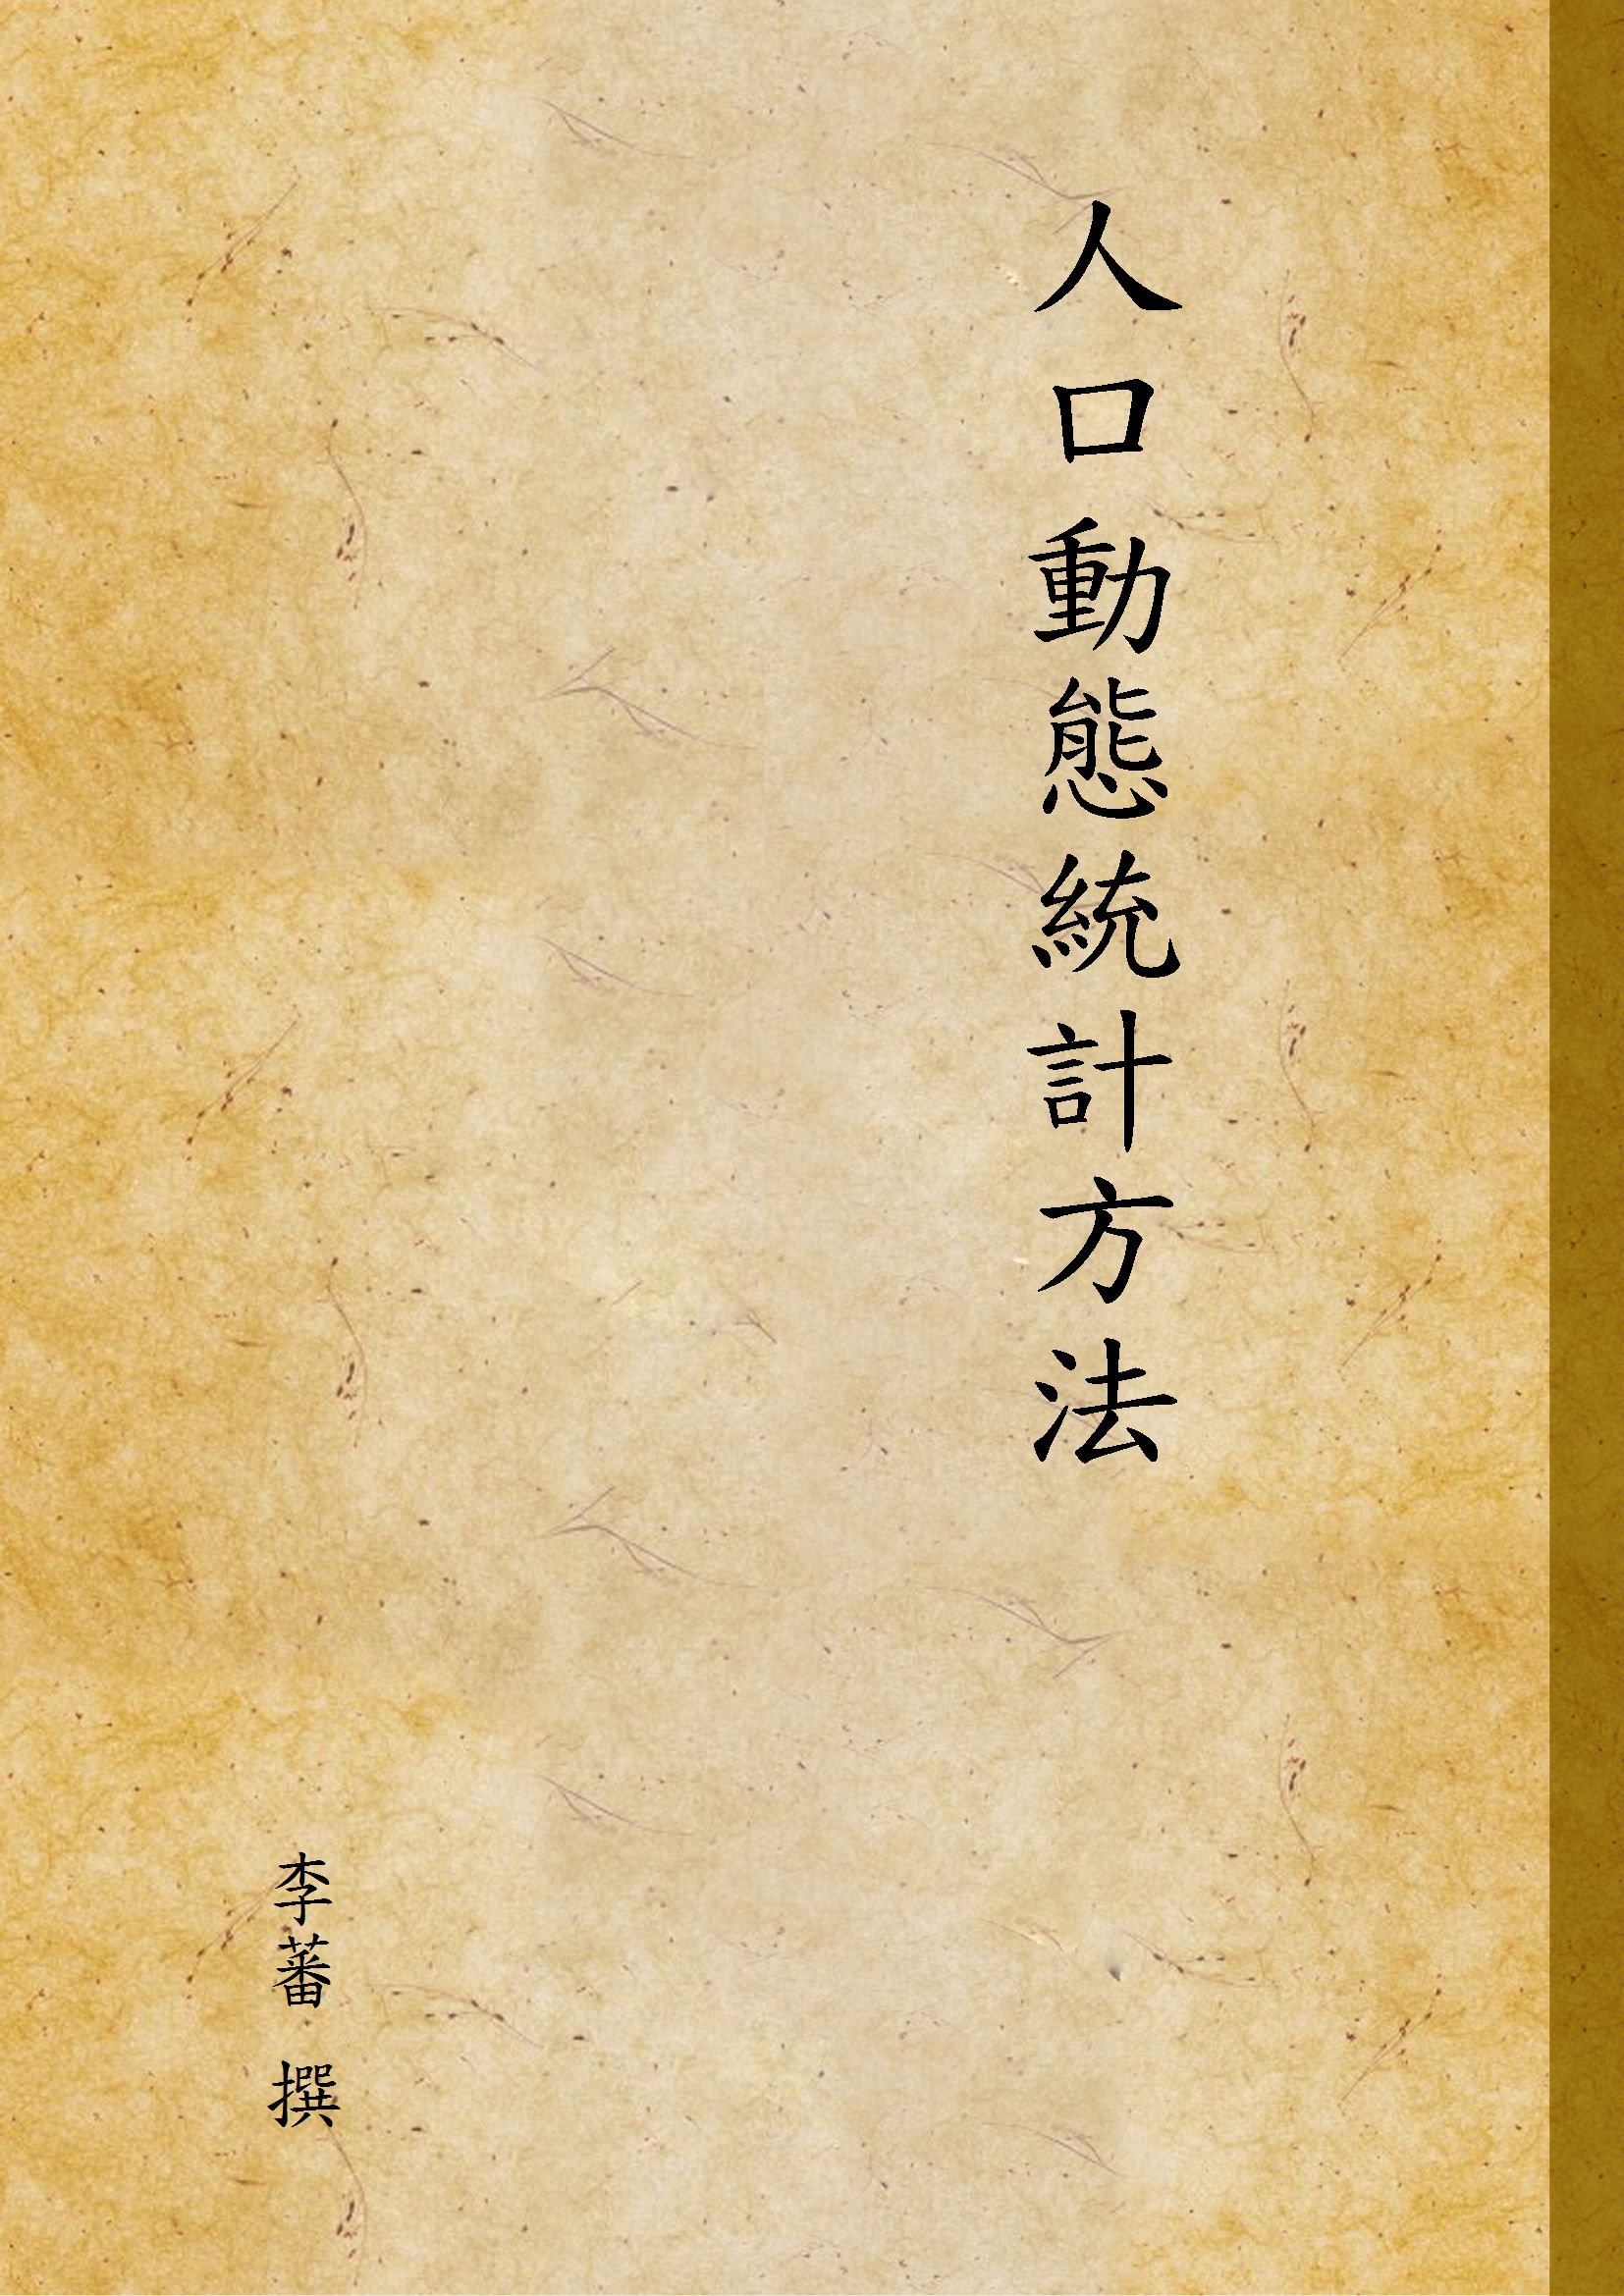 人口動態統計方法
李蕃 撰